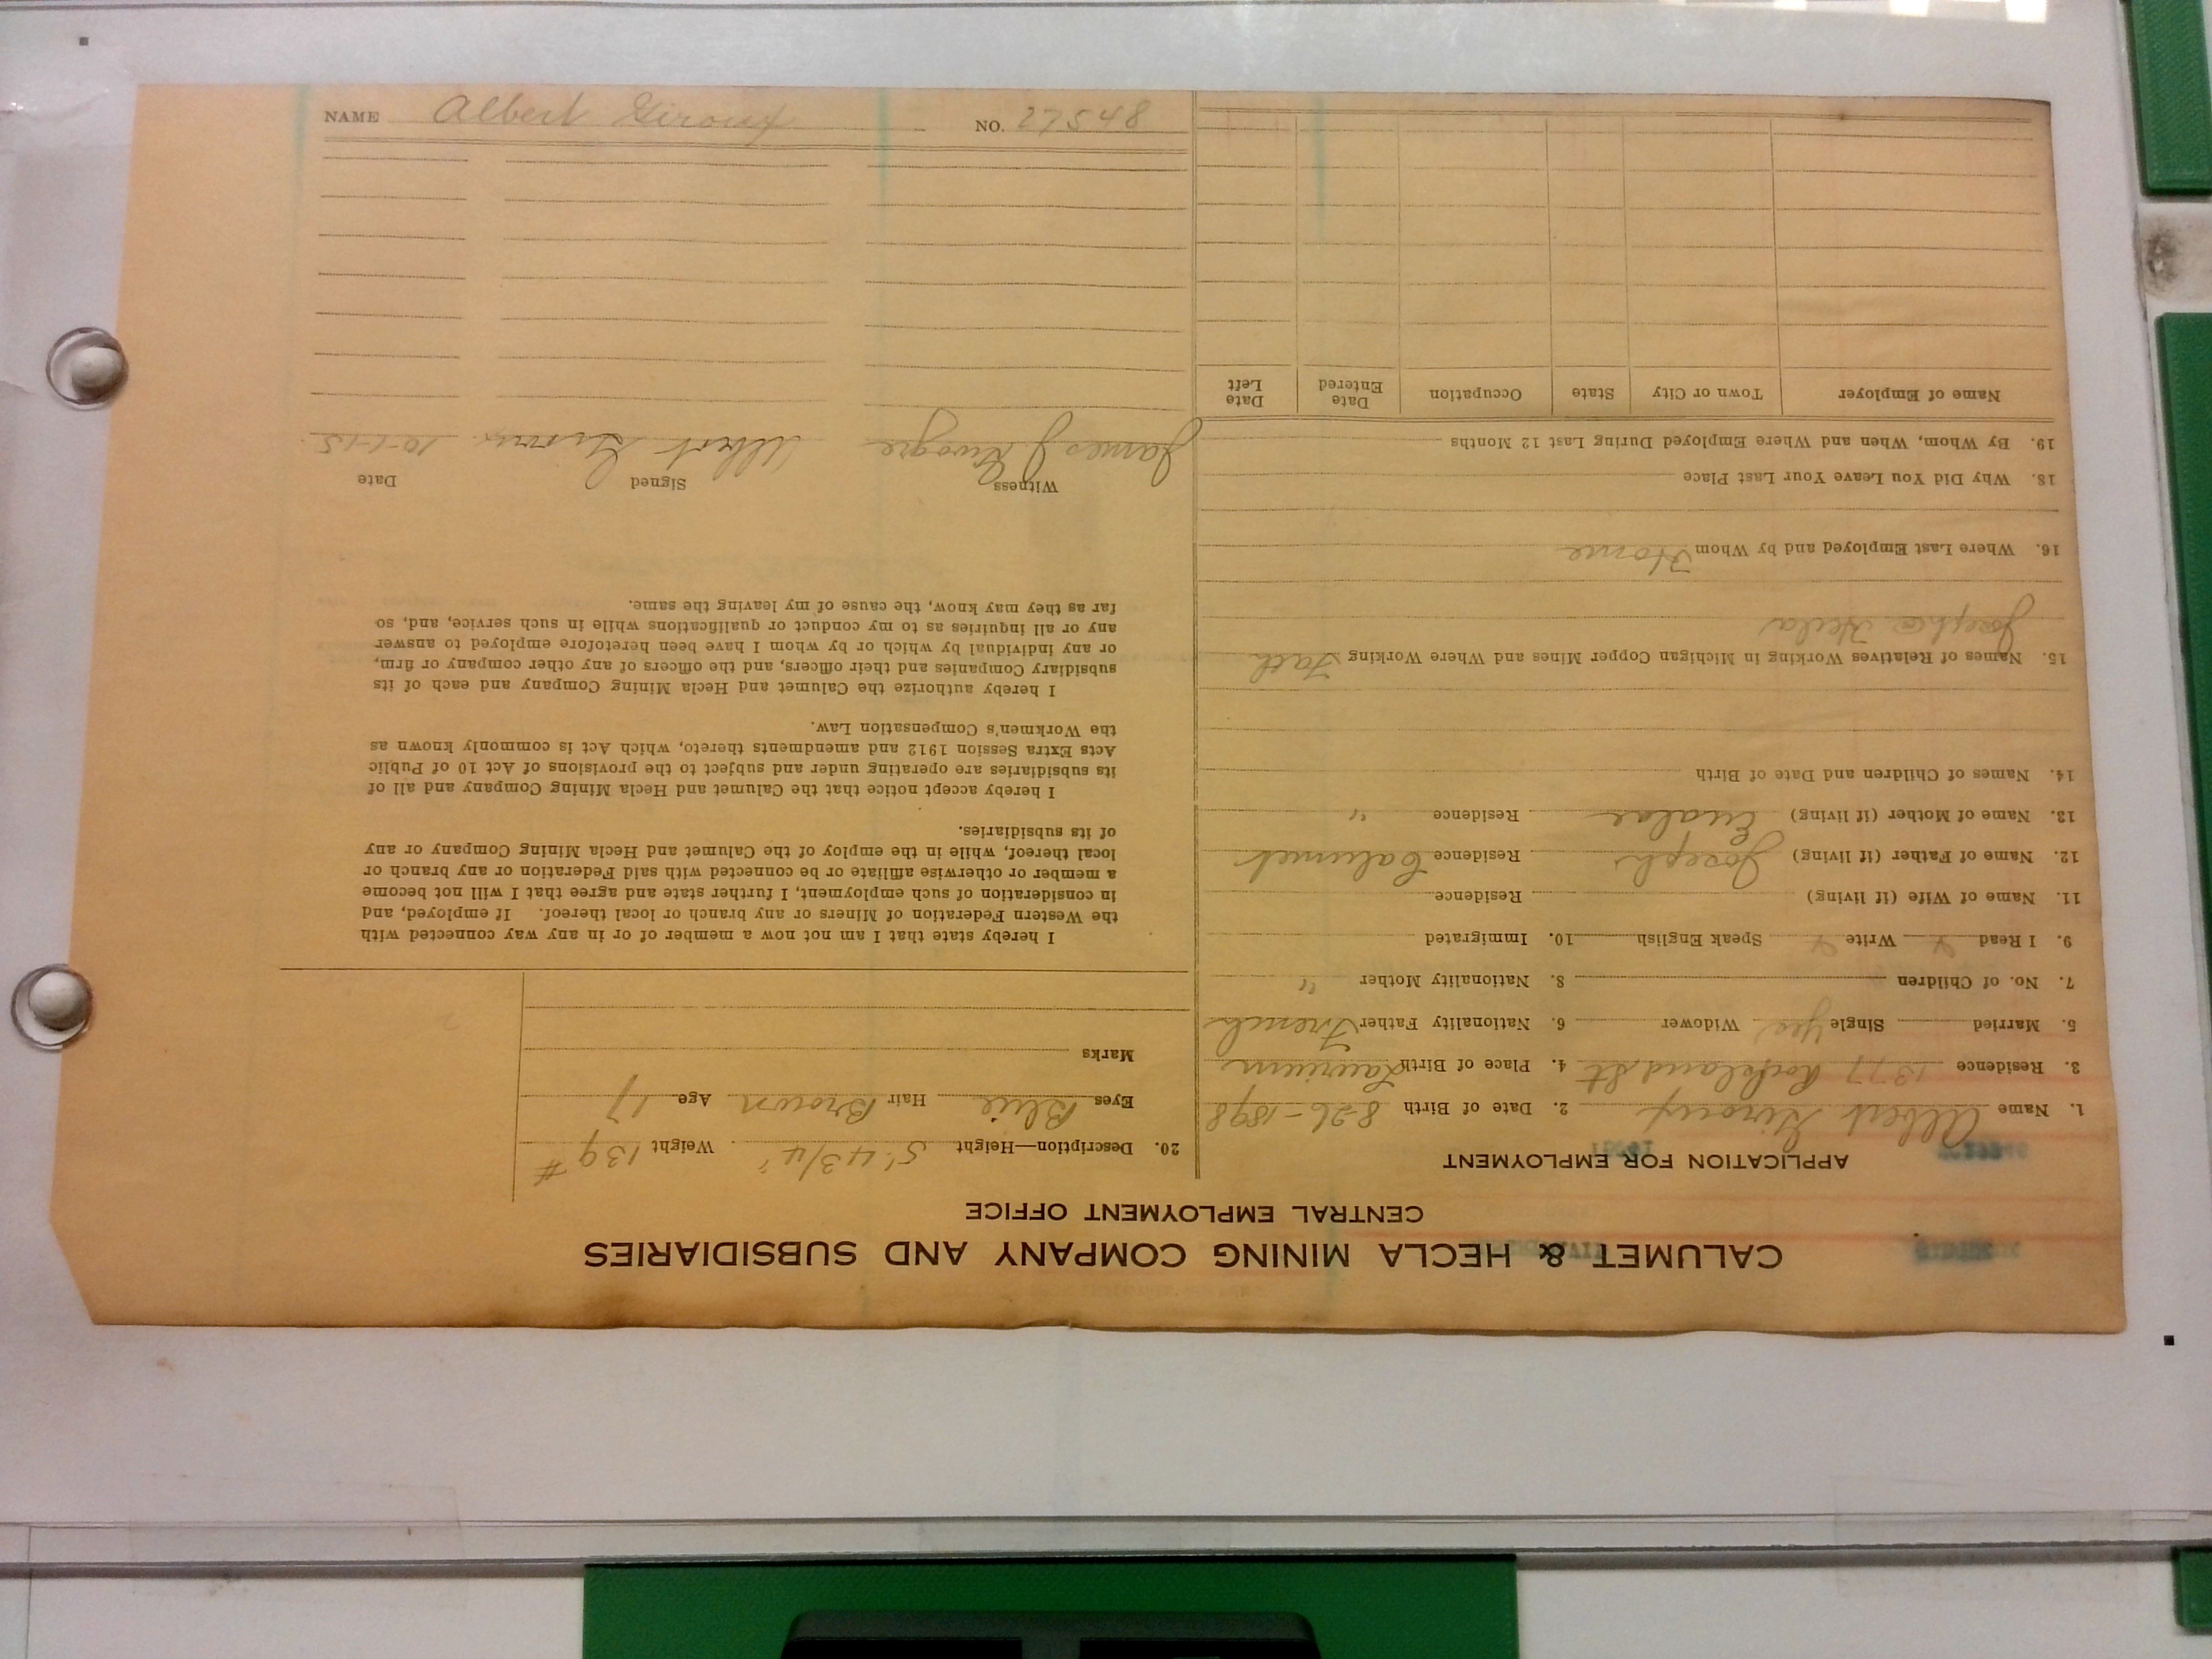 CALUMET & HECLA MINING COMPANY AND SUBSIDIARIES
CENTRAL EMPLOYMENT OFFICE
APPLICATION FOR EMPLOYMENT
1. Name Albert Giroux 2. Date of Birth 8-26-1898
3. Residence 1377 Rockland St 4. Place of Birth Laurium
5. Married Single Yes Widower 6. Nationality Father French
7. No. of Children 8. Nationality Mother "
9. I Read Write Speak English 10. Immigrated
11. Name of Wife (if living) Residence
12. Name of Father (if living) Joseph Residence Calumet
13. Name of Mother (if living) Residence "
14. Names of Children and Date of Birth
15. Names of Relatives Working in Michigan Copper Mines and Where Working Fath
Joseph @ Hecla
16. Where Last Employed and by Whom Home
18. Why Did You Leave Your Last Place
19. By Whom, When and Where Employed During Last 12 Months
Name of Employer Town or City State Occupation Date Entered Date Left
20. Description—Height 5' 4 3/4" Weight 139 #
Eyes Blue Hair Brown Age 17
Marks
I hereby state that I am not now a member of or in any way connected with
the Western Federation of Miners or any branch or local thereof. If employed, and
in consideration of such employment, I further state and agree that I will not become
a member or otherwise affiliate or be connected with said Federation or any branch or
local thereof, while in the employ of the Calumet and Hecla Mining Company or any
of its subsidiaries.
I hereby accept notice that the Calumet and Hecla Mining Company and all of
its subsidiaries are operating under and subject to the provisions of Act 10 of Public
Acts Extra Session 1912 and amendments thereto, which Act is commonly known as
the Workmen's Compensation Law.
I hereby authorize the Calumet and Hecla Mining Company and each of its
subsidiary Companies and their officers, and the officers of any other company or firm,
or any individual by which or by whom I have been heretofore employed to answer
any or all inquiries as to my conduct or qualifications while in such service, and, so
far as they may know, the cause of my leaving the same.
Witness Signed Date
James J Albert Giroux 10-1-15
NAME Albert Giroux NO. 27548